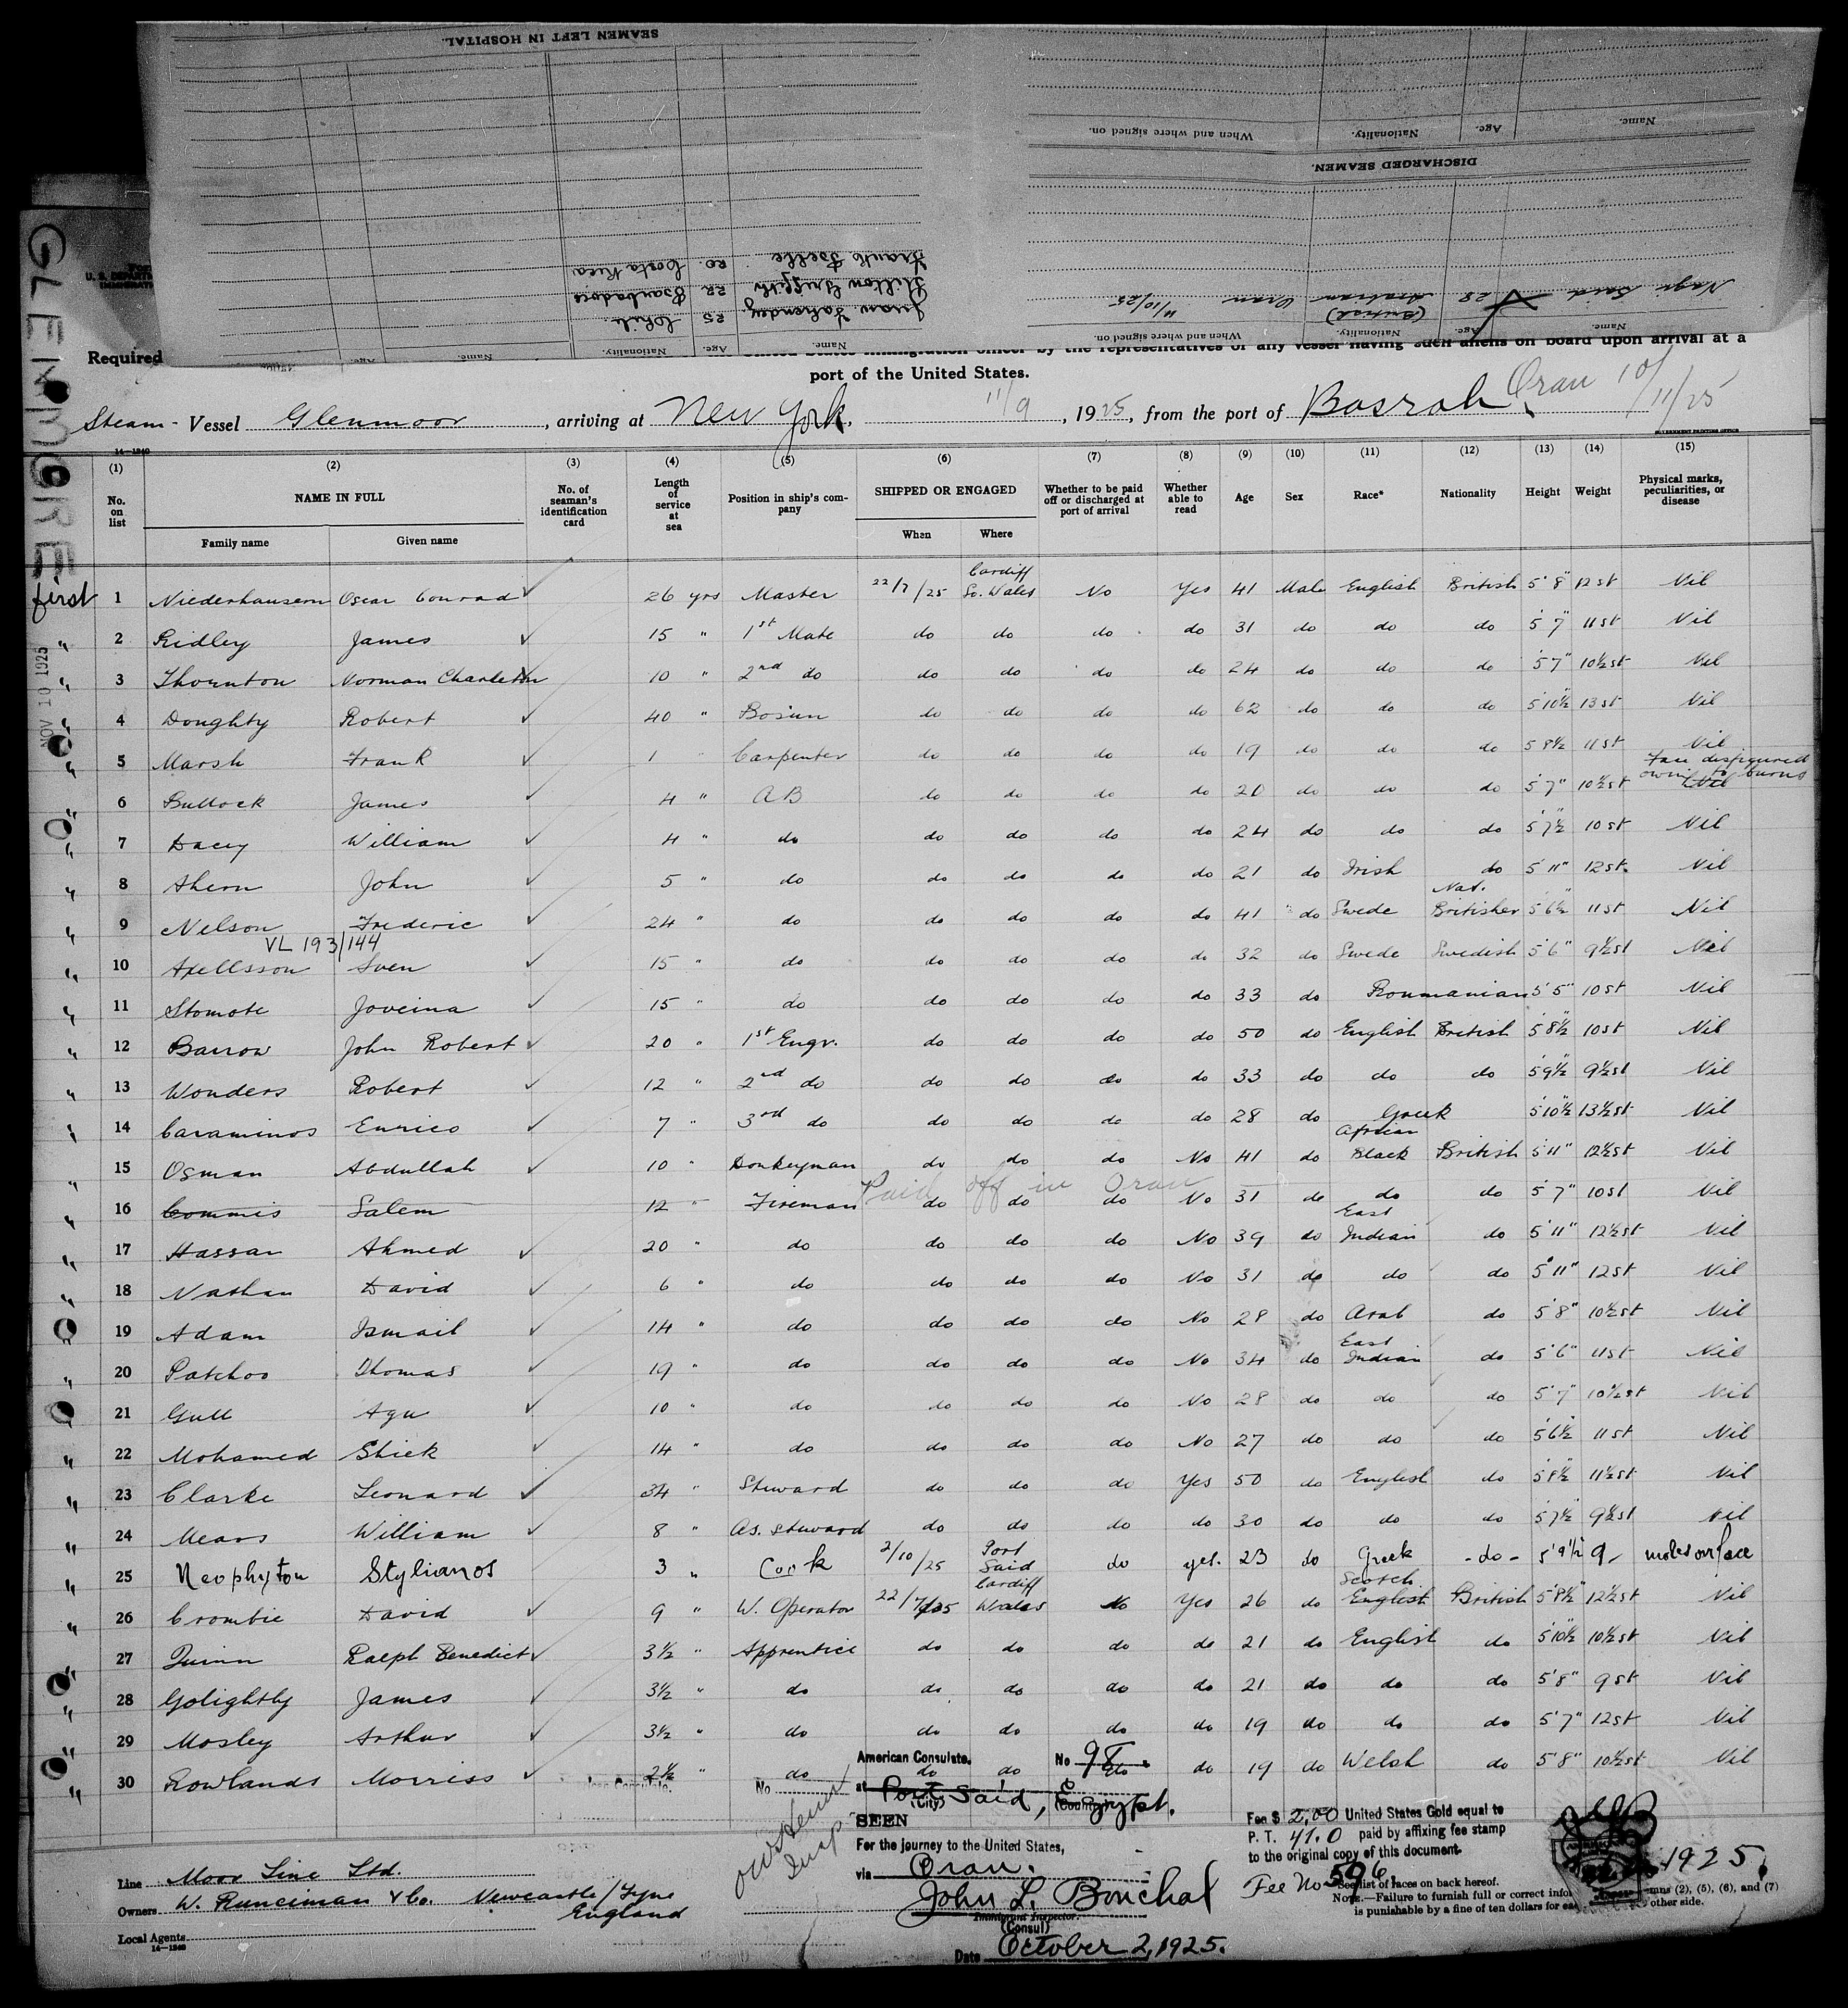 SEAMEN LEFT IN HOSPITAL.
Name. Age. Nationality. When and where signed on.
DISCHARGED SEAMEN.
Frank 20. Costa Rica
Hilton Griffith 22 Barbados
Juan 25 Chile.
Name. Age. Nationality. Name. Age.
Nagi Said 28 Arabian (British) Oran 11/10/25
Name. Age. Nationality. When and where signed on.
GLENMOORE
U. S. DEPART
IMMIGRATION
Required
United States immigration officer by the representatives of any vessel having such aliens on board upon arrival at a
port of the United States.
Steam - Vessel Glenmoor, arriving at New York, 11/9, 1925, from the port of Basrah, Oran 10/11/25
GOVERNMENT PRINTING OFFICE
14—1240
(1) (2) (3) (4) (5) (6) (7) (8) (9) (10) (11) (12) (13) (14) (15)
No. on list
NAME IN FULL
Family name
Given name
No. of seaman's identification card
Length of service at sea
Position in ship's company
SHIPPED OR ENGAGED
When
Where
Whether to be paid off or discharged at port of arrival
Whether able to read
Age
Sex
Race*
Nationality
Height
Weight
Physical marks, peculiarities, or disease
NOV 10 1925
first 1 Niederhausern Oscar Conrad 26 yrs Master 22/7/25 Cardiff So. Wales No Yes 41 Male English British 5'8" 12 st Nil
" 2 Ridley James 15 " 1st Mate do do do do 31 do do do 5'7" 11 st Nil
" 3 Thornton Norman Charleton 10 " 2nd do do do do do 24 do do do 5'7" 10½ st Nil
" 4 Doughty Robert 40 " Bosun do do do do 62 do do do 5'10½" 13 st Nil
" 5 Marsh Frank 1 " Carpenter do do do do 19 do do do 5 8½ 11 st Nil
" 6 Bullock James 4 " AB do do do do 20 do do do 5'7" 10½ st Face disfigured owing to burns Nil
" 7 Dacey William 4 " do do do do do 24 do do do 5'7½" 10 st Nil
" 8 Ahern John 5 " do do do do do 21 do Irish do 5'11" 12 st. Nil
" 9 Nelson Frederic 24 " do do do do do 41 do Swede Nat. Britisher 5'6½" 11 st Nil
VL 193/144
" 10 Axellsson Sven 15 " do do do do do 32 do Swede Swedish 5'6" 9½ st Nil
" 11 Stomote Joveina 15 " do do do do do 33 do Roumanian 5'5" 10 st Nil
" 12 Barrow John Robert 20 " 1st Engr. do do do do 50 do English British 5'8½" 10 st Nil
" 13 Wonders Robert 12 " 2nd do do do do do 33 do do do 5'9½" 9½ st Nil
" 14 Caraminos Enrico 7 " 3rd do do do do do 28 do Greek 5'10½" 13½ st Nil
" 15 Osman Abdullah 10 " Donkeyman do do do No 41 do African Black British 5'11" 12½ st Nil
Paid off in Oran
" 16 Commis Salem 12 " Fireman do do do No 31 do do do 5'7" 10 st Nil
" 17 Hassan Ahmed 20 " do do do do No 39 do East Indian do 5'11" 12½ st Nil
" 18 Nathan David 6 " do do do do No 31 do do do 5'11" 12 st Nil
" 19 Adam Ismail 14 " do do do do No 28 do Arab do 5'8" 10½ st Nil
" 20 Patchoo Thomas 19 " do do do do No 34 do East Indian do 5'6" 11 st Nil
" 21 Gull Agu 10 " do do do do No 28 do do do 5'7" 10½ st Nil
" 22 Mohamed Shiek 14 " do do do do No 27 do do do 5'6½" 11 st Nil
" 23 Clarke Leonard 34 " Steward do do do Yes 50 do English do 5'8½" 11½ st Nil
" 24 Mears William 8 " As. Steward do do do do 30 do do do 5'7½" 9½ st Nil
" 25 Neophyton Stylianos 3 " Cook 2/10/25 Port Said do yes. 23 do Greek - do - 5'9½" 9 - moles on face
" 26 Crombie David 9 " W. Operator 22/7/25 Cardiff Wales No Yes 26 do Scotch English British 5'8½" 12½ st Nil
" 27 Quinn Ralph Benedict 3½ " Apprentice do do do do 21 do English do 5'10½" 10½ st Nil
" 28 Golightly James 3½ " do do do do do 21 do do do 5'8" 9 st Nil
" 29 Mosley Arthur 3½ " do do do do do 19 do do do 5'7" 12 st Nil
" 30 Rowlands Morriss 2½ " do do do do do 19 do Welsh do 5'8" 10½ st Nil
American Consulate, No 98
at Port Said, Egypt.
(City) (Country)
SEEN
For the journey to the United States,
via Oran.
John L. Bouchal
Immigrant Inspector.
(Consul)
Date October 2, 1925.
No
Insp
Fee $ 2.00 United States Gold equal to
P. T. 41.0 paid by affixing fee stamp
to the original copy of this document.
Fee No 596.
See list of races on back hereof.
NOTE.—Failure to furnish full or correct infor mns (2), (5), (6), and (7)
is punishable by a fine of ten dollars for ea other side.
1925.
Line Moor Line Ltd.
Owners W. Runciman & Co. Newcastle/Tyne England
Local Agents
14—1240